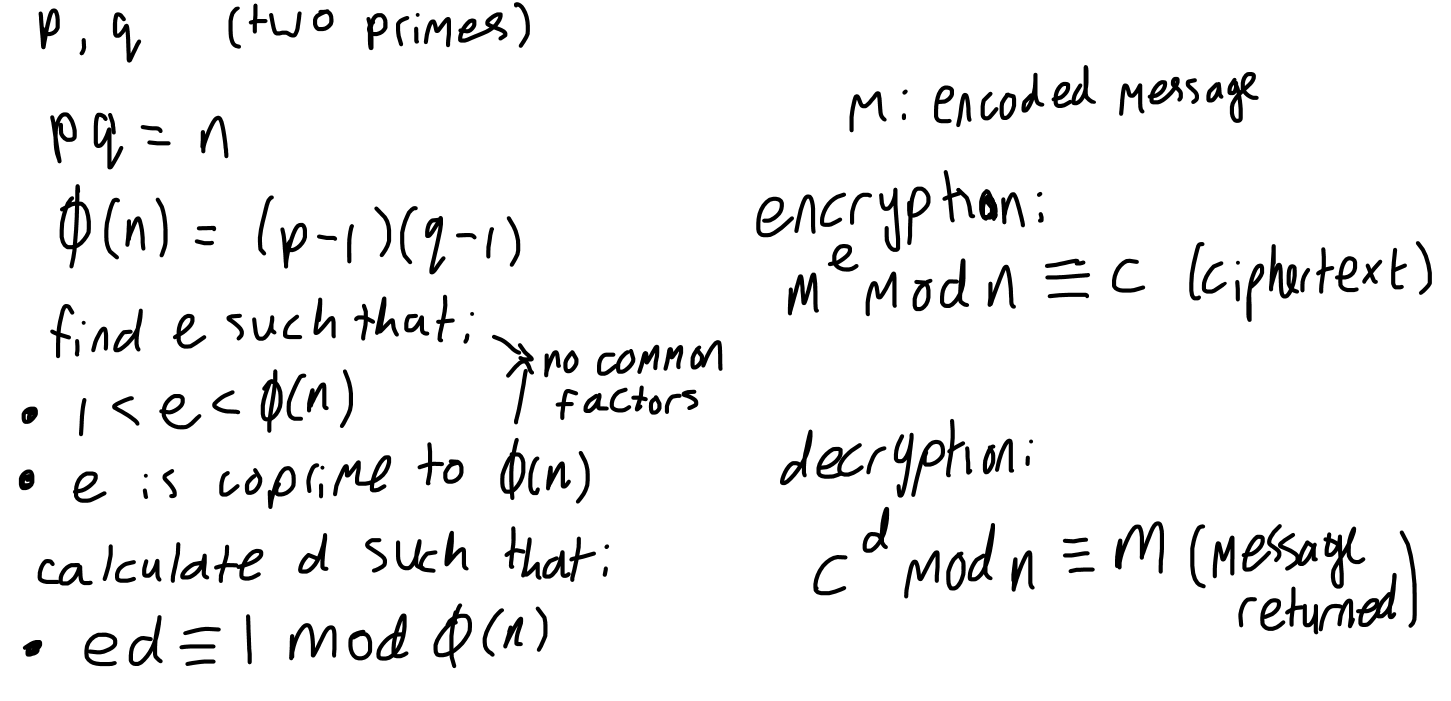 p, q (two primes)
pq = n
ϕ(n) = (p-1)(q-1)
find e such that:
• 1 < e < ϕ(n)
• e is coprime to ϕ(n)
no common
factors
calculate d such that:
• ed ≡ 1 mod ϕ(n)
m: encoded message
encryption:
m^e mod n ≡ c (ciphertext)
decryption:
c^d mod n ≡ m (message
returned)